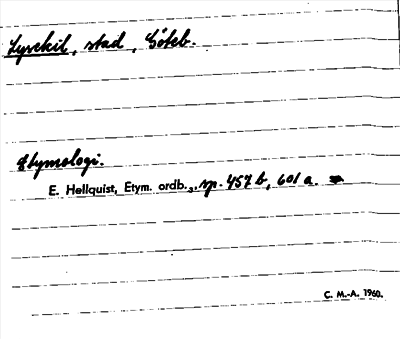 Lysekil, stad, Göteb.
Etymologi.
E. Hellquist, Etym. ordb., sp. 457 b, 601 a.
C. M.-A. 1960.